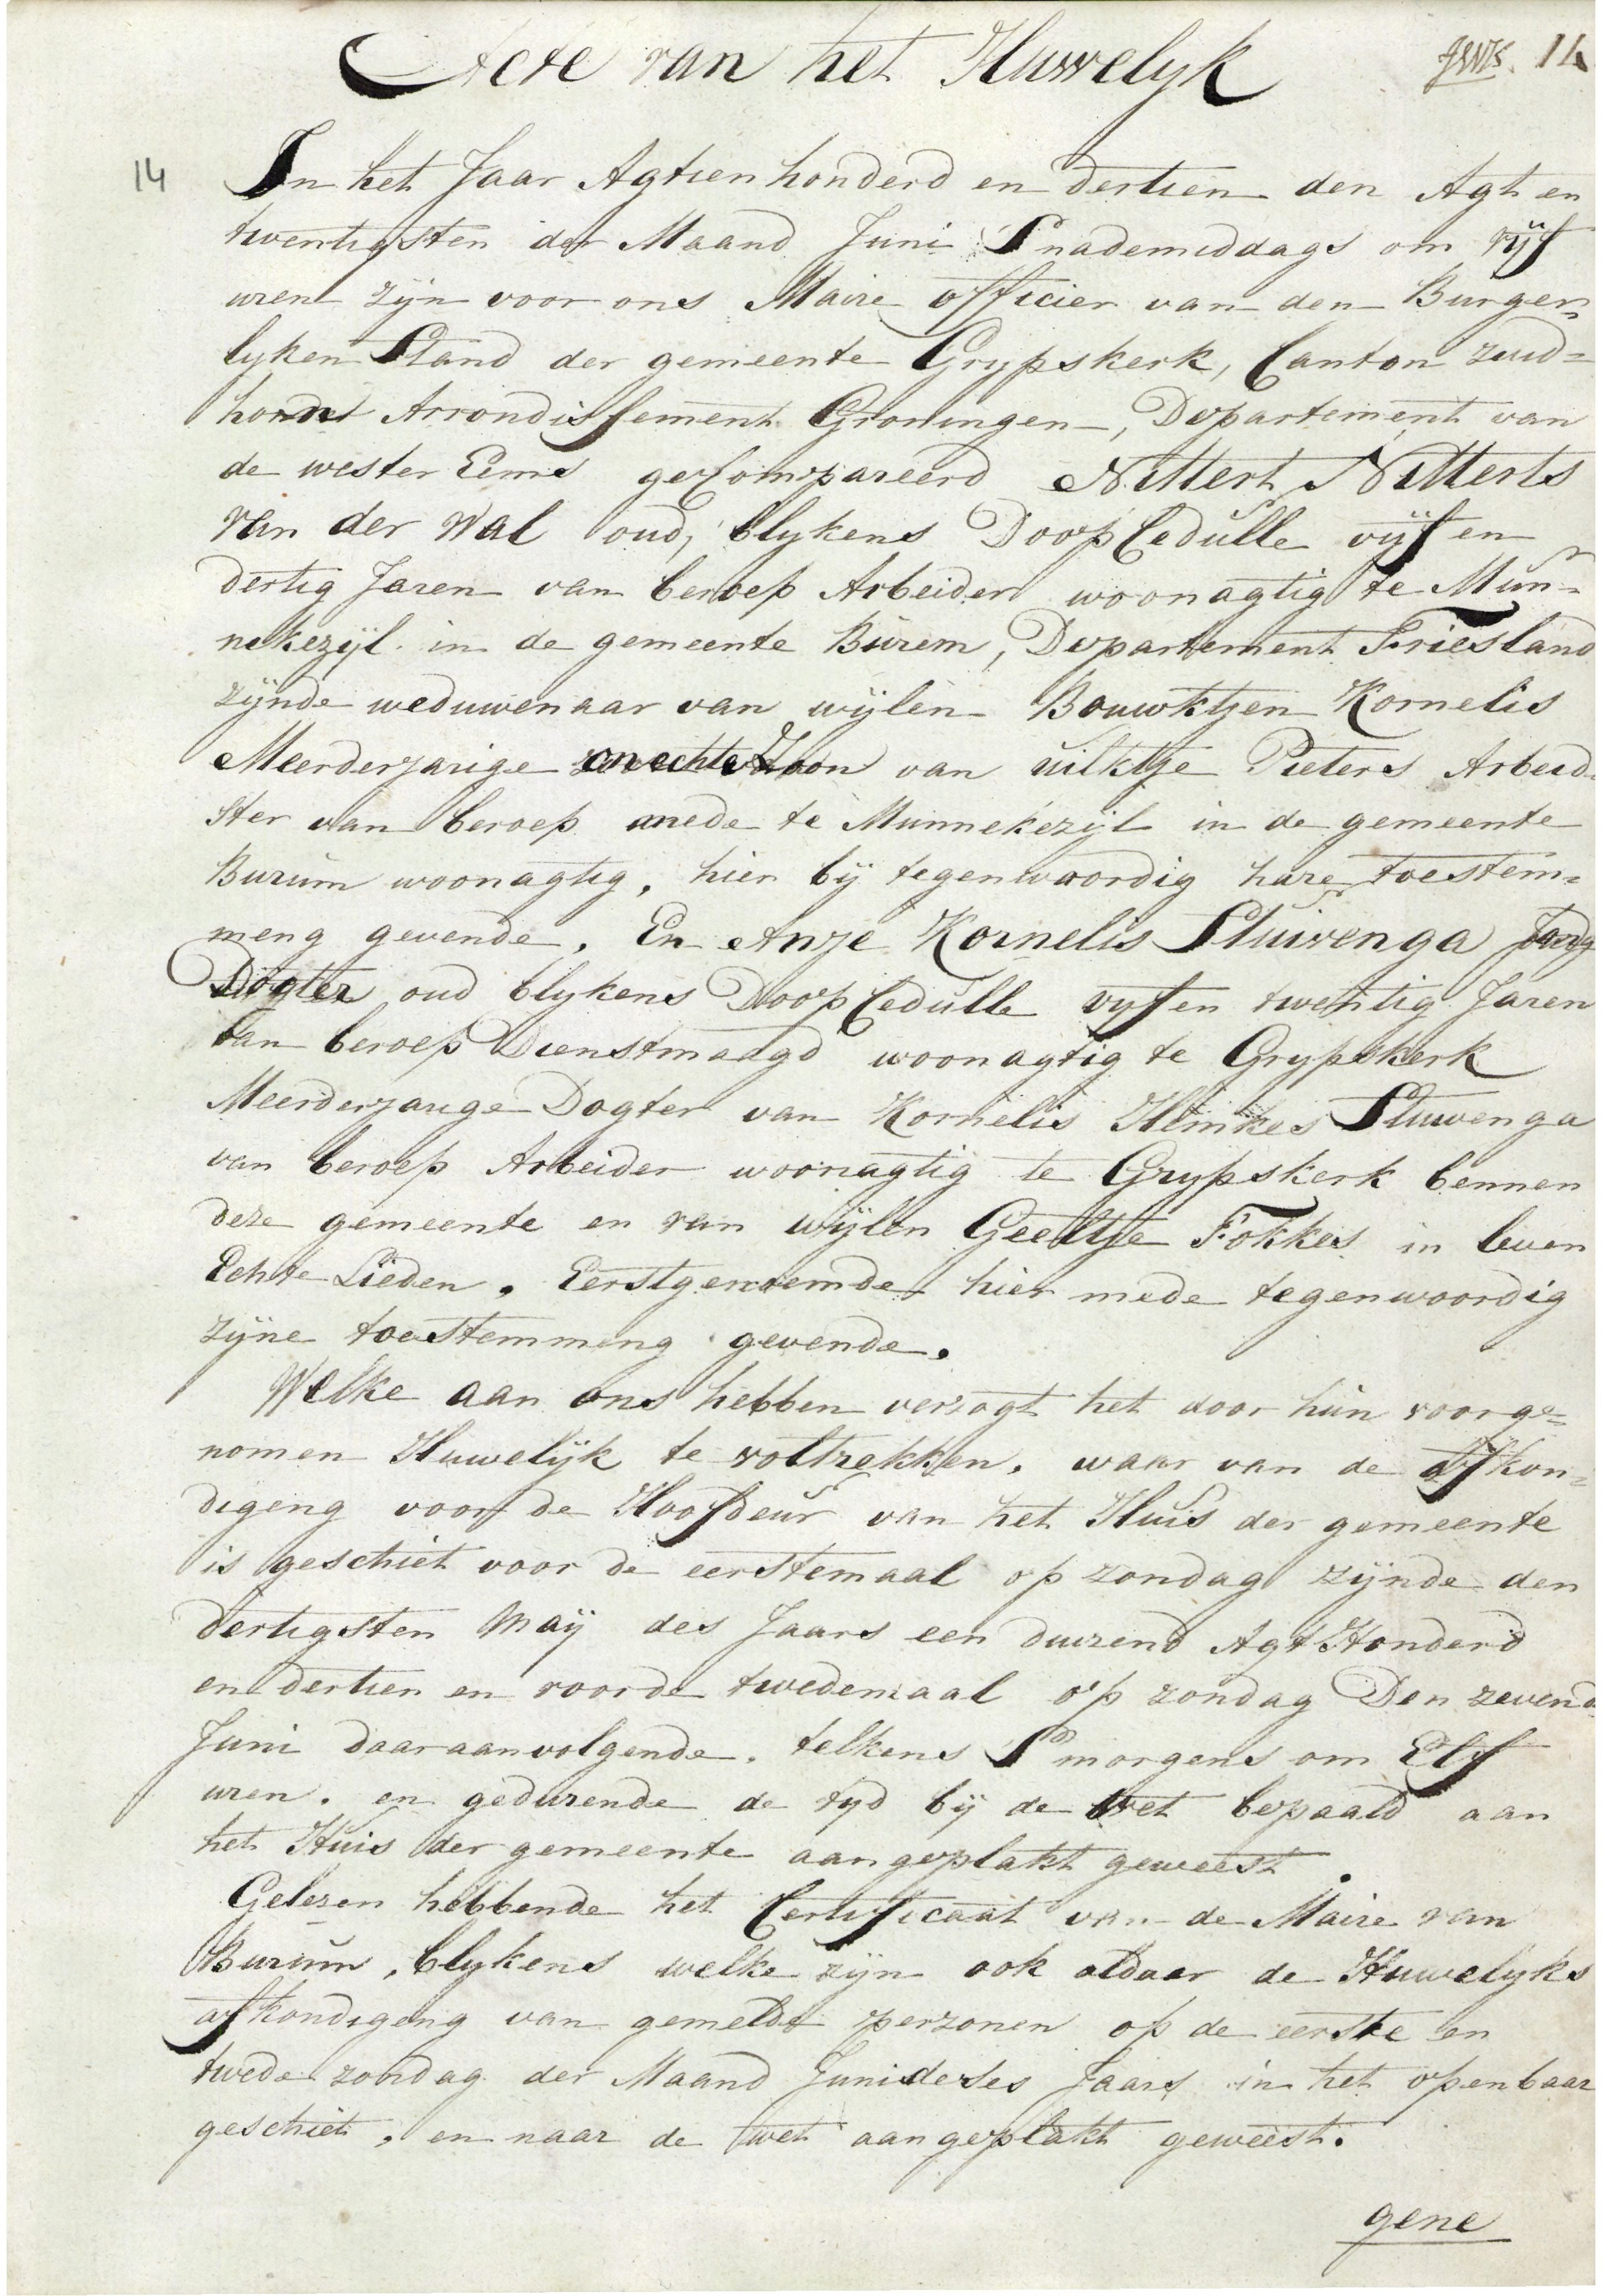 Acte van het Huwelyk
14
14 In het Jaar Agtien honderd en dertien den Agt en
twentigsten der Maand Juni S nademiddags om vijf
uren zijn voor ons Maire officier van den Burger=
lyken Stand der gemeente Grypskerk, Canton zuid=
hornt Arrondissement Groningen, Departement van
de wester Eems geCompareerd Nittert Nitterts
van der Wal oud, blykens Doop Cedulle vijf en
dertig Jaren van beroep Arbeider woonagtig te Mun=
nekezijl in de gemeente Burem, Departement Friesland
zijnde weduwenaar van wijlen Bouwktjen Kornelis
Meerderjarige onechte Zoon van uilktje Pieters Arbeid=
ster van beroep mede te Munnekezijl in de gemeente
Burum woonagtig, hier bij tegenwoordig hare toestem=
meng gevende. En Anje Kornelis Stuivenga Jong
Dogter oud blykens Doop Cedulle vyf en twentig Jaren
van beroep Dienstmaagd woonagtig te Grypskerk
Meerderjarige Dogter van Kornelis Hinkes Stuwenga
van beroep Arbeider woonagtig te Grypskerk bennen
deze gemeente en van wijlen Geeltje Fokkes in leven
Echte Lieden. Eerstgenoemde hier mede tegenwoordig
zijne toestemmeng gevende.
Welke aan ons hebben verzogt het door hun voorge=
nomen Huwelijk te voltrekken. waar van de afkon=
digeng voor de Hoofdeur van het Huis der gemeente
is geschiet voor de eerstemaal op zondag zijnde den
dertigsten Maij des Jaars een duizend Agt Honderd
en dertien en voorde twedemaal op zondag Den zevend
Juni daaraanvolgende. telkens S morgens om Elf
uren. en gedurende de tyd bij de wet bepaald aan
het Huis der gemeente aangeplakt geweest.
Gelezen hebbende het Certificaat van de Maire van
Burum, blykens welke zijn ook aldaar de Huwelyks
afkondigeng van gemelde perzonen op de eerste en
twede zondag der Maand Juni deses Jaars in het openbaar
geschiet, en naar de wet aangeplakt geweest.
gene